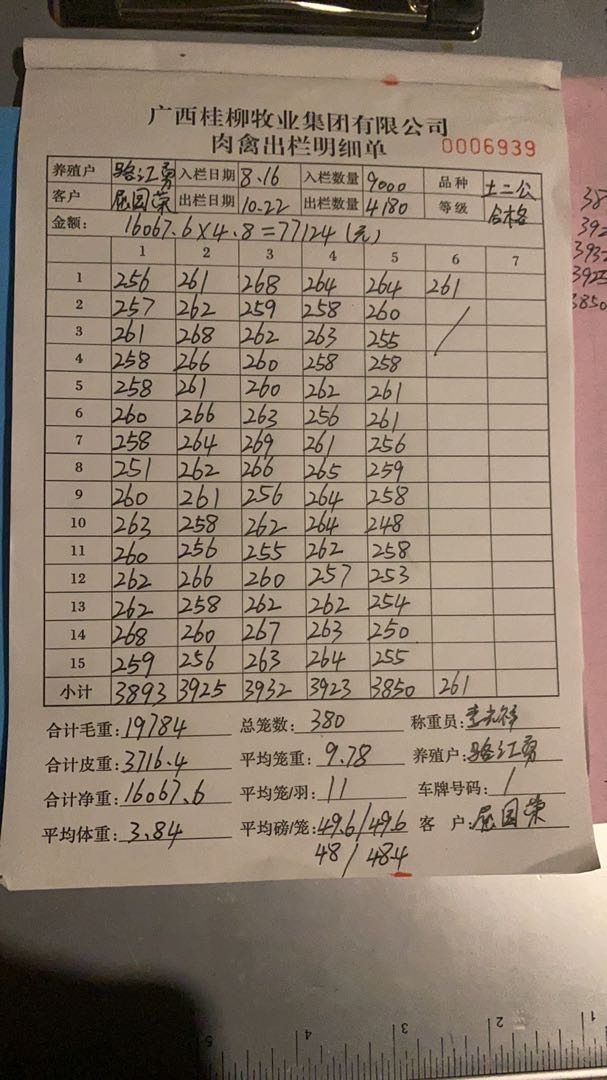 广西桂柳牧业集团有限公司
肉禽出栏明细单 0006939
养殖户 骆江勇 入栏日期 8.16 入栏数量 9000 品种 土二公
客户 屈国荣 出栏日期 10.22 出栏数量 4180 等级 合格
金额: 16067.6×4.8=77124(元)
1 2 3 4 5 6 7
1 256 261 268 264 264 261
2 257 262 259 258 260
3 261 268 262 263 255
4 258 266 260 258 258
5 258 261 260 262 261
6 260 266 263 256 261
7 258 264 269 261 256
8 251 262 266 265 259
9 260 261 256 264 258
10 263 258 262 264 248
11 260 256 255 262 258
12 262 266 260 257 253
13 262 258 262 262 254
14 268 260 267 263 250
15 259 256 263 264 255
小计 3893 3925 3932 3923 3850 261
合计毛重: 19784 总笼数: 380 称重员:
合计皮重: 3716.4 平均笼重: 9.78 养殖户: 骆江勇
合计净重: 16067.6 平均笼/羽: 11 车牌号码: /
平均体重: 3.84 平均磅/笼: 49.6/49.6 客 户: 屈国荣
48/48.4
38
392
393
3925
3850
5 4 3 2 1